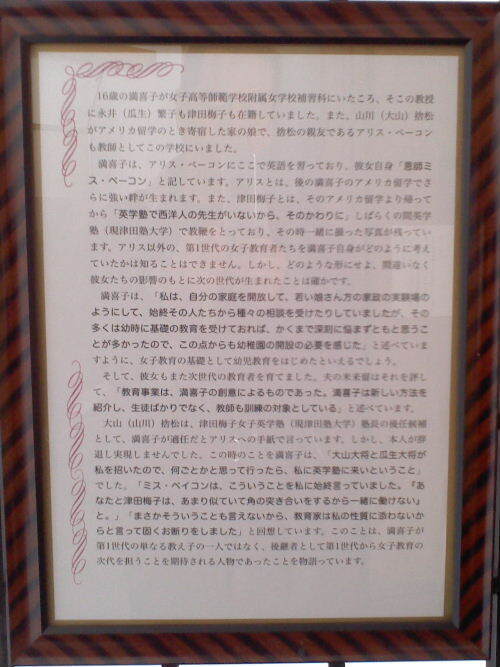 16歳の満喜子が女子高等師範学校附属女学校補習科にいたころ、そこの教授
に永井（瓜生）繁子も津田梅子も在籍していました。また、山川（大山）捨松
がアメリカ留学のとき寄宿した家の娘で、捨松の親友であるアリス・ベーコン
も教師としてこの学校にいました。
満喜子は、アリス・ベーコンにここで英語を習っており、彼女自身「恩師ミ
ス・ベーコン」と記しています。アリスとは、後の満喜子のアメリカ留学でさ
らに強い絆が生まれます。また、津田梅子とは、そのアメリカ留学より帰って
から「英学塾で西洋人の先生がいないから、そのかわりに」しばらくの間英学
塾（現津田塾大学）で教鞭をとっており、その時一緒に撮った写真が残ってい
ます。アリス以外の、第1世代の女子教育者たちを満喜子自身がどのように考え
ていたかは知ることはできません。しかし、どのような形にせよ、間違いなく
彼女たちの影響のもとに次の世代が生まれたことは確かです。
満喜子は、「私は、自分の家庭を開放して、若い娘さん方の家政の実験場の
ようにして、始終その人たちから種々の相談を受けたりしていましたが、その
多くは幼時に基礎の教育を受けておれば、かくまで深刻に悩まずともと思うこ
とが多かったので、この点からも幼稚園の開設の必要を感じた」と述べていま
すように、女子教育の基礎として幼児教育をはじめたといえるでしょう。
そして、彼女もまた次世代の教育者を育てました。夫の米来留はそれを評し
て、「教育事業は、満喜子の創意によるものであった。満喜子は新しい方法を
紹介し、生徒ばかりでなく、教師も訓練の対象としている」と述べています。
大山（山川）捨松は、津田梅子女子英学塾（現津田塾大学）塾長の後任候補
として、満喜子が適任だとアリスへの手紙で言っています。しかし、本人が辞
退し実現しませんでした。この時のことを満喜子は、「大山大将と瓜生大将が
私を招いたので、何ごとかと思って行ったら、私に英学塾に来いということ」
でした。「ミス・ベイコンは、こういうことを私に始終言っていました。『あ
なたと津田梅子は、あまり似ていて角の突き合いをするから一緒に働けない』
と。」「まさかそういうことも言えないから、教育家は私の性質に添わないか
らと言って固くお断りをしました」と回想しています。このことは、満喜子が
第1世代の単なる教え子の一人ではなく、後継者として第1世代から女子教育の
次代を担うことを期待される人物であったことを物語っています。